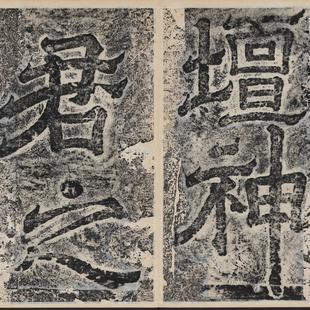 壇神
君之